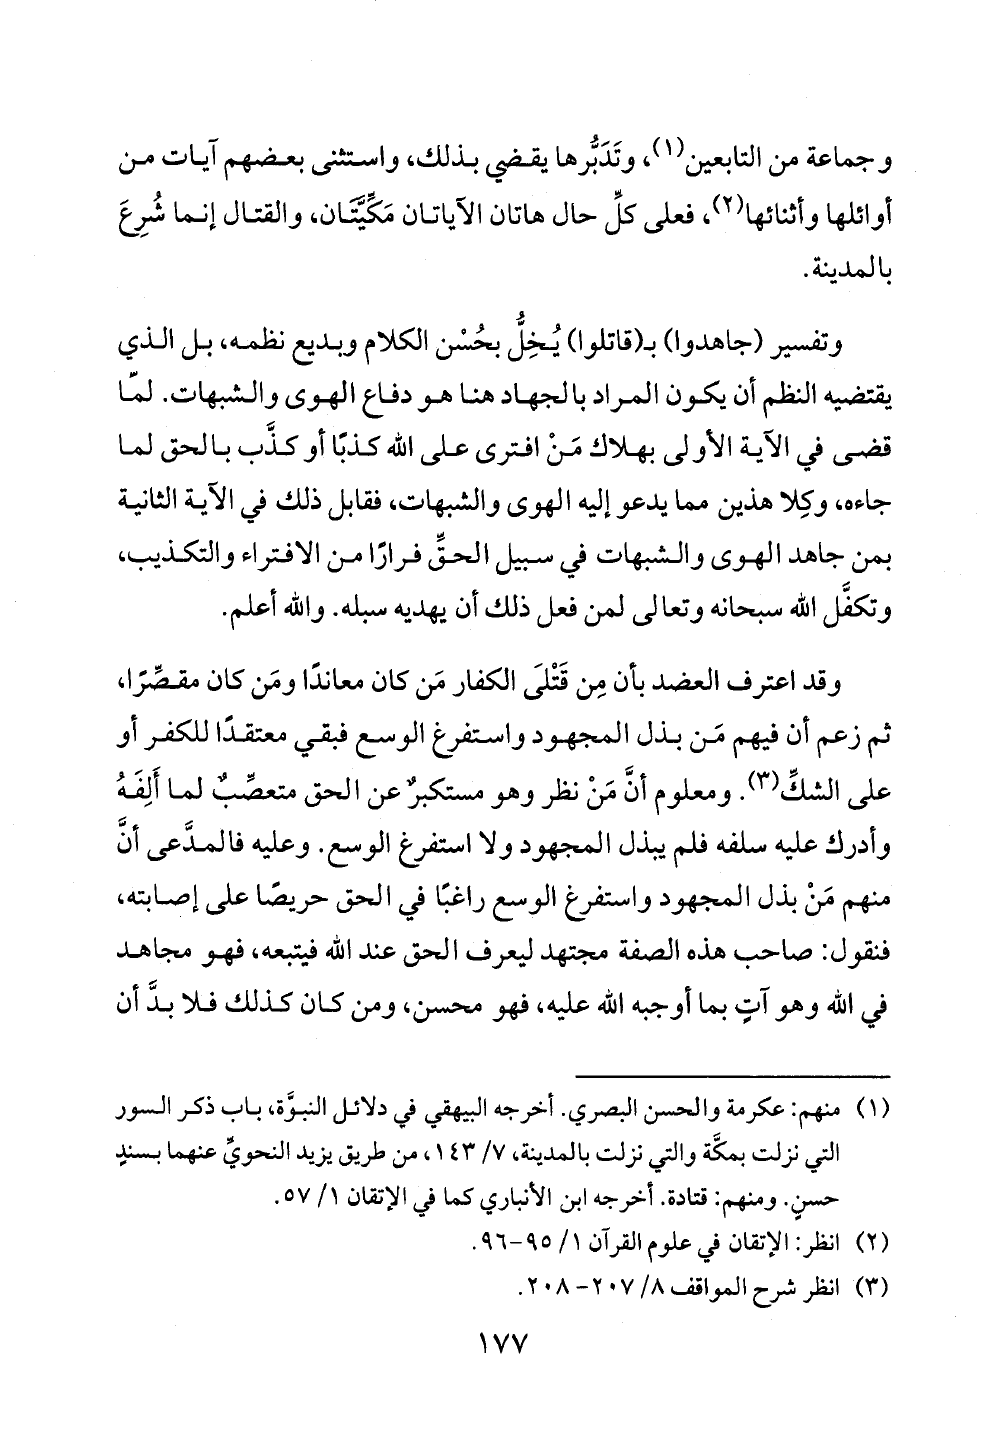 وجماعة من التابعين(١)، وتَدَبُّرها يقضي بذلك، واستثنى بعضهم آيات من
أوائلها وأثنائها(٢)، فعلى كلِّ حال هاتان الآياتان مَكِّيَّتَان، والقتال إنما شُرِعَ
بالمدينة.
وتفسير (جاهدوا) بـ(قاتلوا) يُخِلُّ بحُسْن الكلام وبديع نظمه، بل الذي
يقتضيه النظم أن يكون المراد بالجهاد هنا هو دفاع الهوى والشبهات. لمّا
قضى في الآية الأولى بهلاك مَنْ افترى على الله كذبًا أو كذَّب بالحق لما
جاءه، وكِلا هذين مما يدعو إليه الهوى والشبهات، فقابل ذلك في الآية الثانية
بمن جاهد الهوى والشبهات في سبيل الحقِّ فرارًا من الافتراء والتكذيب،
وتكفَّل الله سبحانه وتعالى لمن فعل ذلك أن يهديه سبله. والله أعلم.
وقد اعترف العضد بأن مِن قَتْلَى الكفار مَن كان معاندًا ومَن كان مقصِّرًا،
ثم زعم أن فيهم مَن بذل المجهود واستفرغ الوسع فبقي معتقدًا للكفر أو
على الشكِّ(٣). ومعلوم أنَّ مَنْ نظر وهو مستكبرٌ عن الحق متعصِّبٌ لما أَلِفَهُ
وأدرك عليه سلفه فلم يبذل المجهود ولا استفرغ الوسع. وعليه فالمدَّعى أنَّ
منهم مَنْ بذل المجهود واستفرغ الوسع راغبًا في الحق حريصًا على إصابته،
فنقول: صاحب هذه الصفة مجتهد ليعرف الحق عند الله فيتبعه، فهو مجاهد
في الله وهو آتٍ بما أوجبه الله عليه، فهو محسن، ومن كان كذلك فلا بدَّ أن
(١) منهم: عكرمة والحسن البصري. أخرجه البيهقي في دلائل النبوَّة، باب ذكر السور
التي نزلت بمكَّة والتي نزلت بالمدينة، ٧/ ١٤٣، من طريق يزيد النحويِّ عنهما بسندٍ
حسنٍ. ومنهم: قتادة. أخرجه ابن الأنباري كما في الإتقان ١/ ٥٧.
(٢) انظر: الإتقان في علوم القرآن ١/ ٩٥-٩٦.
(٣) انظر شرح المواقف ٨/ ٢٠٧-٢٠٨.
١٧٧